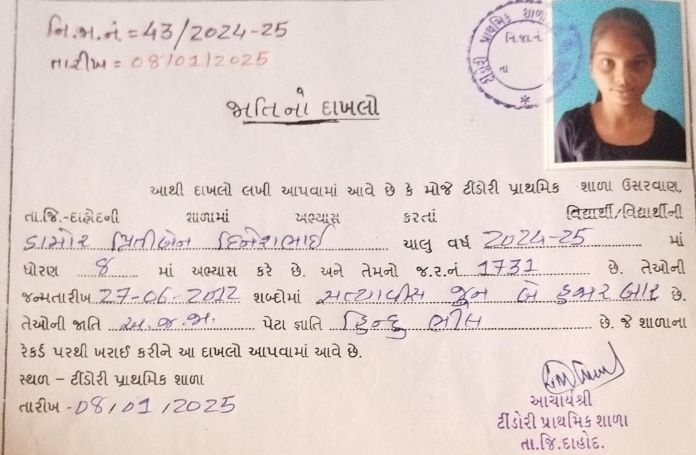 નિ.જા.નં = 43/2024-25
તારીખ = 08/01/2025
ટીંડોરી પ્રાથમિક શાળા
નિ.જા.નં.
તા
જાતિનો દાખલો
આથી દાખલો લખી આપવામાં આવે છે કે મોજે ટીંડોરી પ્રાથમિક શાળા ઉસરવાણ,
તા.જિ.-દાહોદની શાળામાં અભ્યાસ કરતાં વિદ્યાર્થી/વિદ્યાર્થીની
ડામોર પ્રિતીબેન દિનેશભાઈ ચાલુ વર્ષ 2024-25 માં
ધોરણ 8 માં અભ્યાસ કરે છે. અને તેમનો જ.ર.નં 1731 છે. તેઓની
જન્મતારીખ 27-06-2012 શબ્દોમાં સત્યાવીસ જુન બે હજાર બાર છે.
તેઓની જાતિ અ.જ.જા. પેટા જ્ઞાતિ હિન્દુ ભીલ છે. જે શાળાના
રેકર્ડ પરથી ખરાઈ કરીને આ દાખલો આપવામાં આવે છે.
સ્થળ – ટીંડોરી પ્રાથમિક શાળા
તારીખ - 08/01/2025
આચાર્યશ્રી
ટીંડોરી પ્રાથમિક શાળા
તા.જિ.દાહોદ.